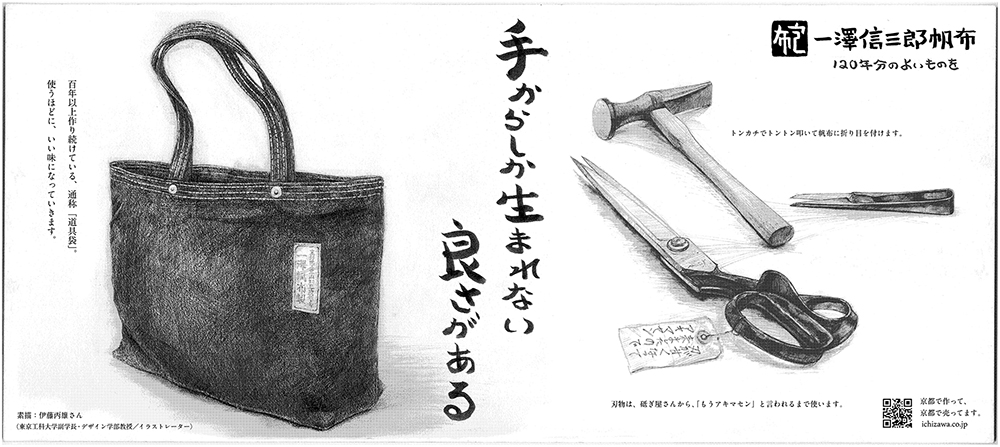 百年以上作り続けている、通称「道具袋」。
使うほどに、いい味になっていきます。
手からしか生まれない
良さがある
一澤信三郎帆布
120年分のよいものを
トンカチでトントン叩いて帆布に折り目を付けます。
刃物は、砥ぎ屋さんから、「もうアキマセン」と言われるまで使います。
素描：伊藤丙雄さん
（東京工科大学副学長・デザイン学部教授／イラストレーター）
京都で作って、
京都で売ってます。
ichizawa.co.jp